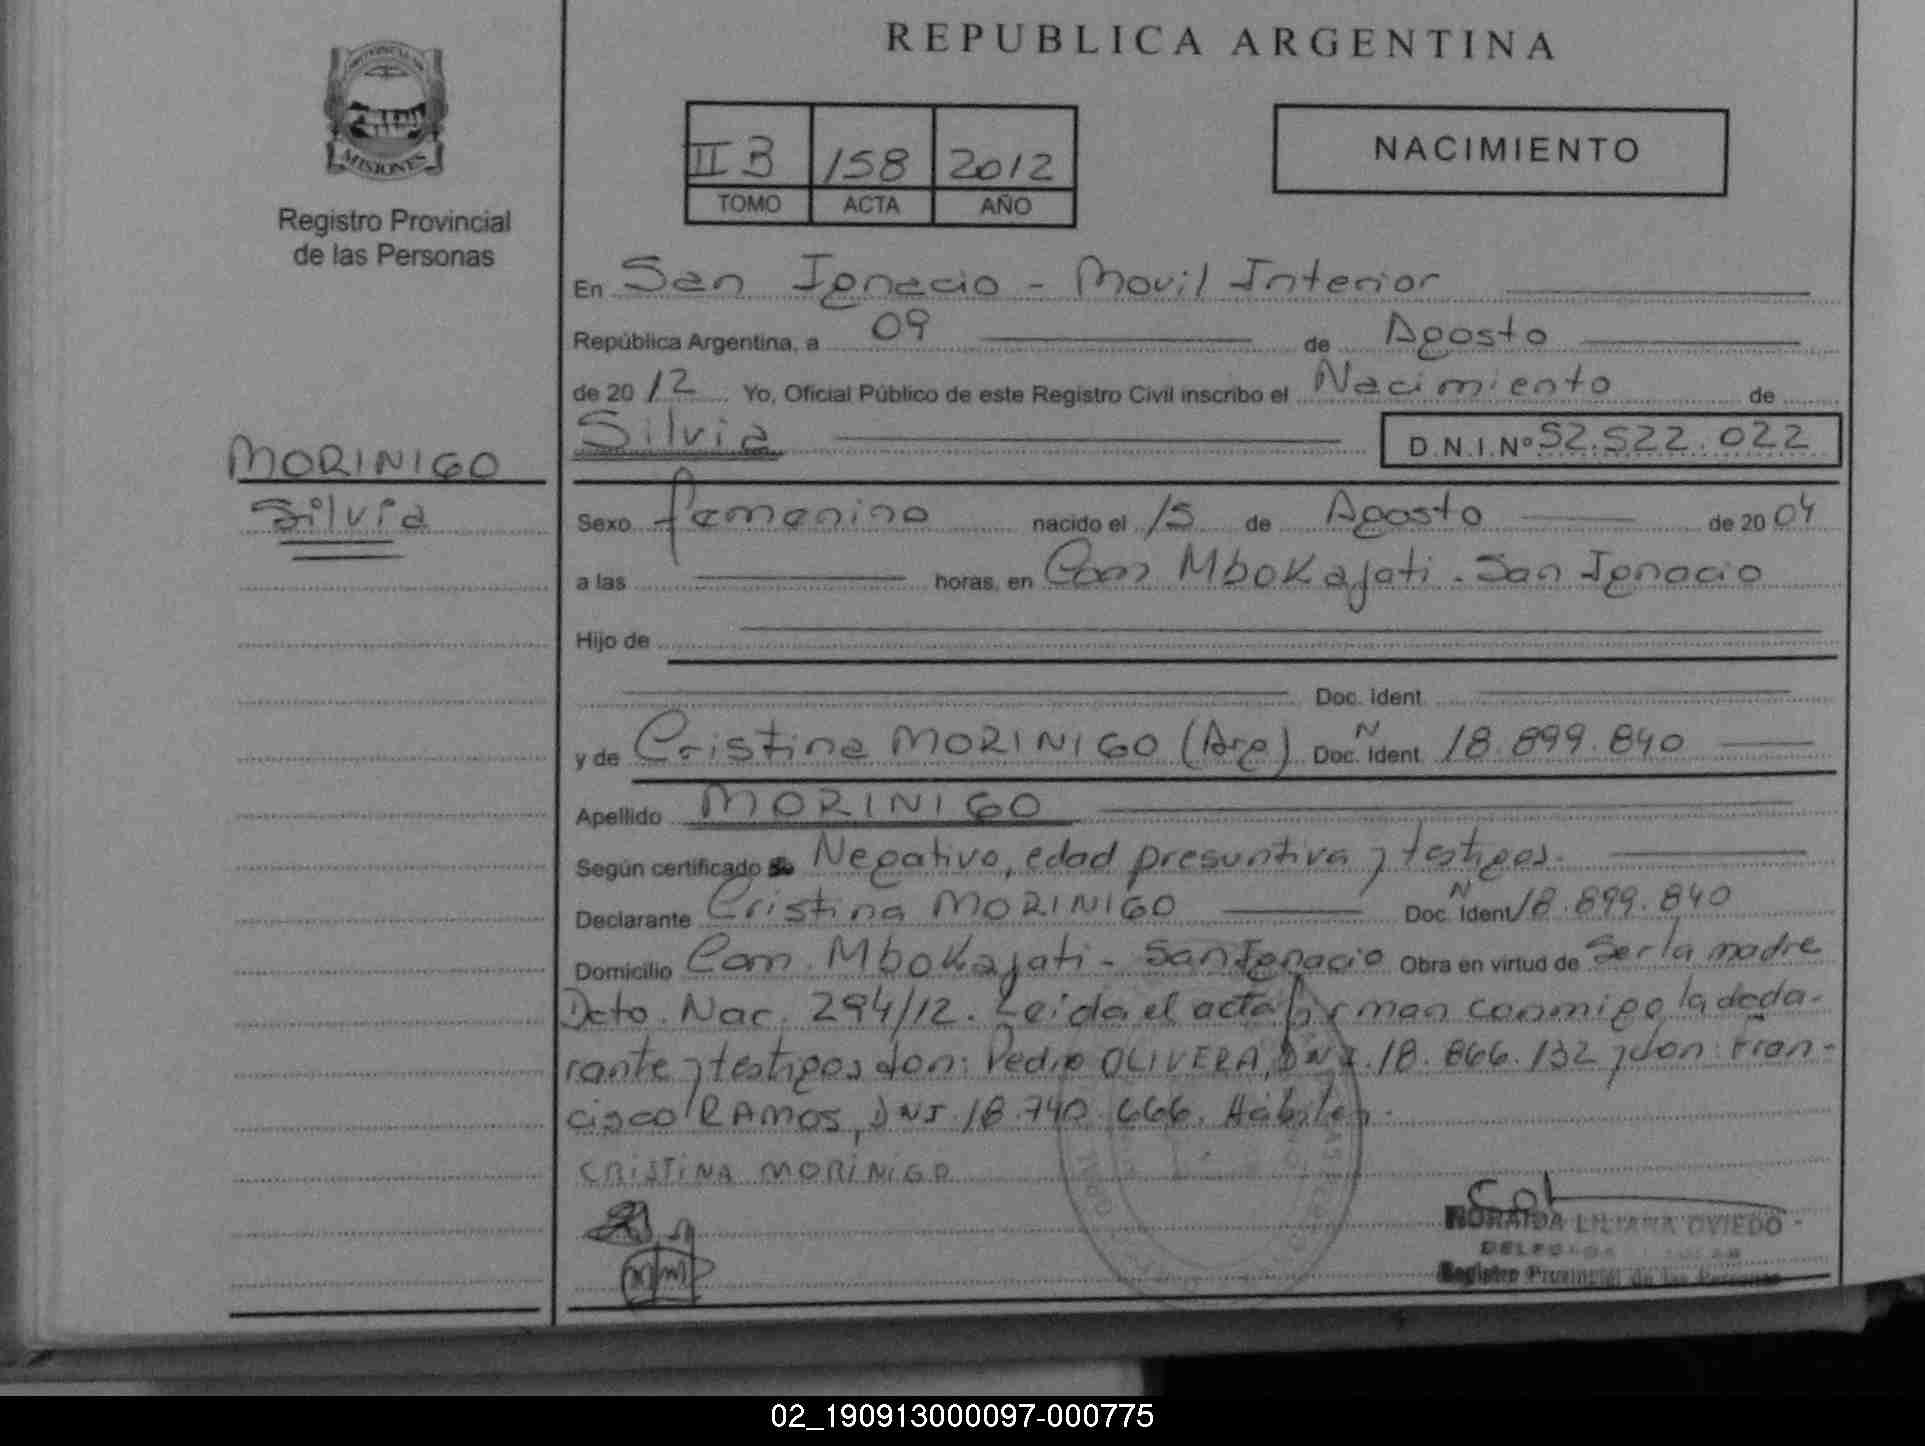 REPUBLICA ARGENTINA
PROVINCIA DE
MISIONES
Registro Provincial
de las Personas
II B 158 2012
TOMO ACTA AÑO
NACIMIENTO
En San Ignacio - Movil Interior
República Argentina, a 09 de Agosto
de 2012 Yo, Oficial Público de este Registro Civil inscribo el Nacimiento de
Silvia D.N.I.Nº 52.522.022
MORINIGO
Silvia
Sexo femenino nacido el 15 de Agosto de 2004
a las horas, en Com Mbokajati - San Ignacio
Hijo de
Doc. Ident.
y de Cristina MORINIGO (Arg) Doc. Ident. N 18.899.840
Apellido MORINIGO
Según certificado Negativo, edad presuntiva y testigos.
Declarante Cristina MORINIGO Doc. Ident. N 18.899.840
Domicilio Com. Mbokajati - San Ignacio Obra en virtud de Ser la madre
Dcto. Nac. 294/12. Leida el acta firman conmigo la decla-
rante y testigos don: Pedro OLIVERA, DNI. 18.866.132 y don: Fran-
cisco RAMOS, DNI. 18.740.666. Hábiles.
CRISTINA MORINIGO
LILIANA OVIEDO
DELEGADA
Registro Provincial de las Personas
02_190913000097-000775